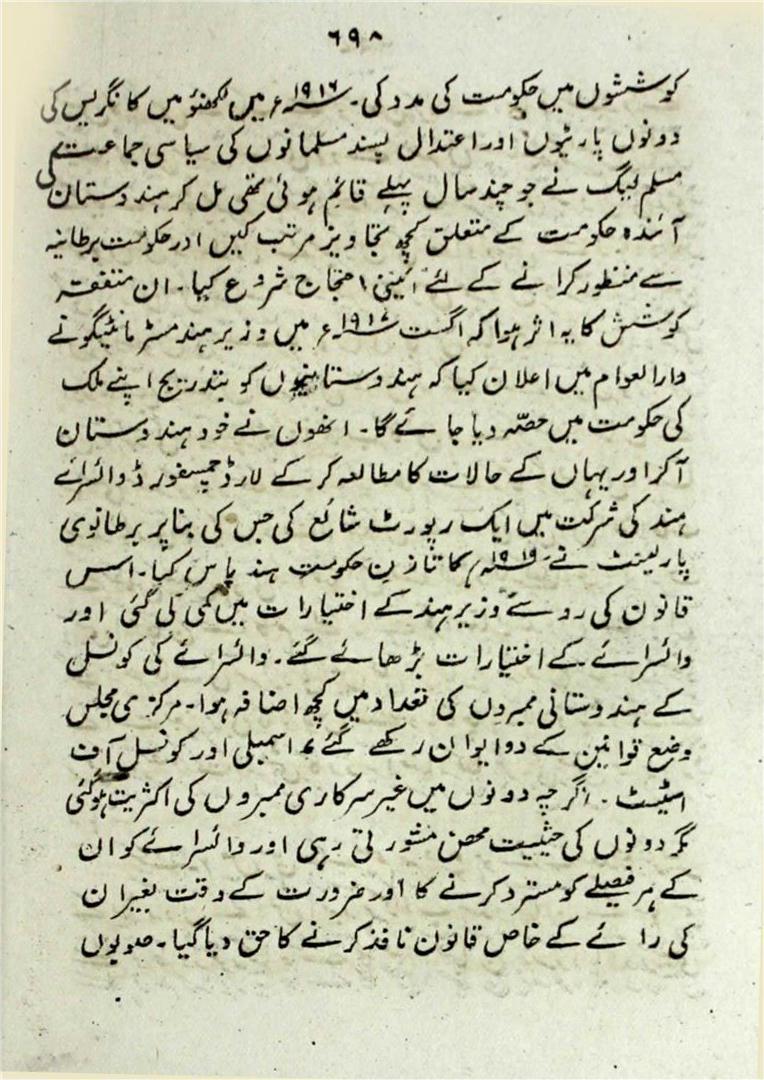 ۶۹۸
کوششوں میں حکومت کی مدد کی۔ ۱۹۱۶ء میں لکھنؤ میں کانگریس کی
دونوں پارٹیوں اور اعتدال پسند مسلمانوں کی سیاسی جماعت
مسلم لیگ نے جو چند سال پہلے قائم ہوئی تھی مل کر ہندوستان کی
آئندہ حکومت کے متعلق کچھ تجاویز مرتب کیں اور حکومت برطانیہ
سے منظور کرانے کے لئے آئینی احتجاج شروع کیا۔ ان متفقہ
کوشش کا یہ اثر ہوا کہ اگست ۱۹۱۷ء میں وزیر ہند مسٹر مانٹیگو نے
دارالعوام میں اعلان کیا کہ ہندوستانیوں کو بتدریج اپنے ملک
کی حکومت میں حصّہ دیا جائے گا۔ انھوں نے خود ہندوستان
آکر اور یہاں کے حالات کا مطالعہ کر کے لارڈ چمسفورڈ وائسرائے
ہند کی شرکت میں ایک رپورٹ شائع کی جس کی بنا پر برطانوی
پارلیمنٹ نے ۱۹۱۹ء کا قانون حکومت ہند پاس کیا۔ اس
قانون کی رو سے وزیر ہند کے اختیارات میں کمی کی گئی اور
وائسرائے کے اختیارات بڑھائے گئے۔ وائسرائے کی کونسل
کے ہندوستانی ممبروں کی تعداد میں کچھ اضافہ ہوا۔ مرکزی مجلس
وضع قوانین کے دو ایوان رکھے گئے، اسمبلی اور کونسل آف
اسٹیٹ۔ اگرچہ دونوں میں غیر سرکاری ممبروں کی اکثریت ہوگئی
مگر دونوں کی حیثیت محض مشورتی رہی اور وائسرائے کو ان
کے ہر فیصلے کو مسترد کرنے کا اور ضرورت کے وقت بغیر ان
کی رائے کے خاص قانون نافذ کرنے کا حق دیا گیا۔ صوبوں